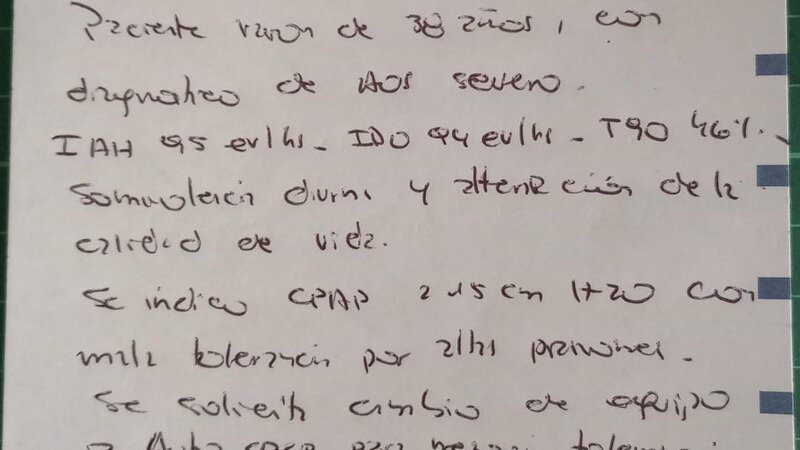 Paciente varon de 38 años, con
diagnostico de AOS severo.
IAH 95 ev/hs - IDO 94 ev/hs - T90 46%.
Somnolencia diurna y alteración de la
calidad de vida.
Se indico CPAP a 15 cm H20 con
mala tolerancia por altas presiones.
Se solicita cambio de equipo
a Auto CPAP para mejor tolerancia